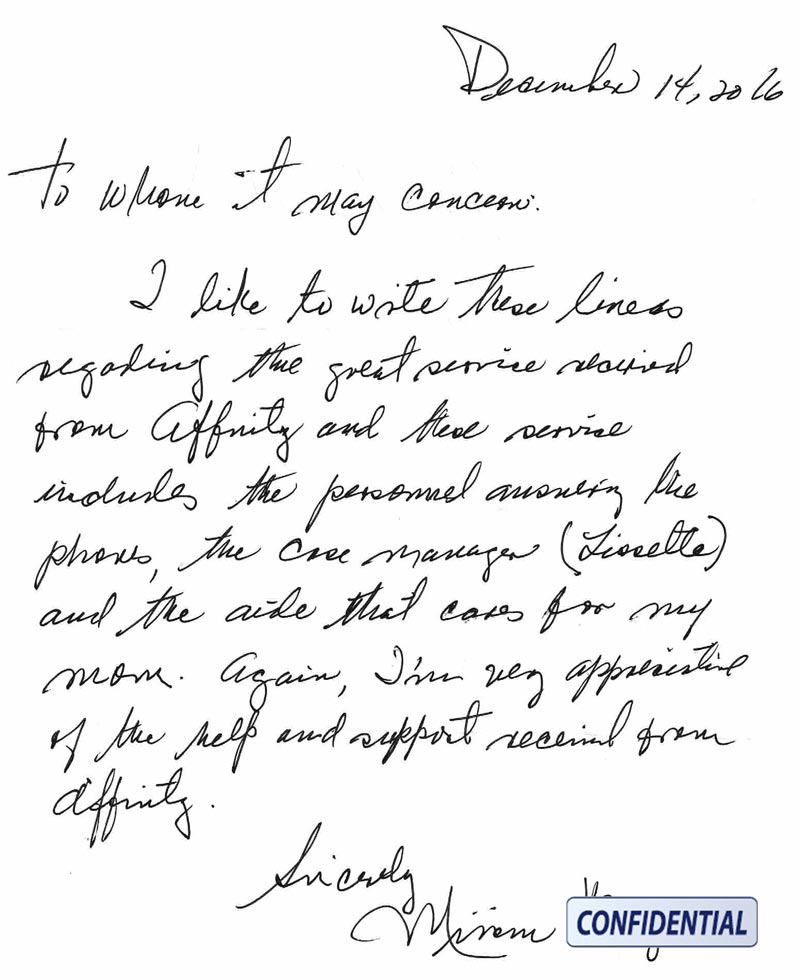 December 14, 2016
To whom it may concern.
I like to write these lines
regading the great service received
from Affinity and these service
includes the personnel answering the
phones, the case manager (Lissette)
and the aide that cares for my
mom. Again, I'm very appreciative
of the help and support received from
Affinity.
Sincerely
Miriam
CONFIDENTIAL